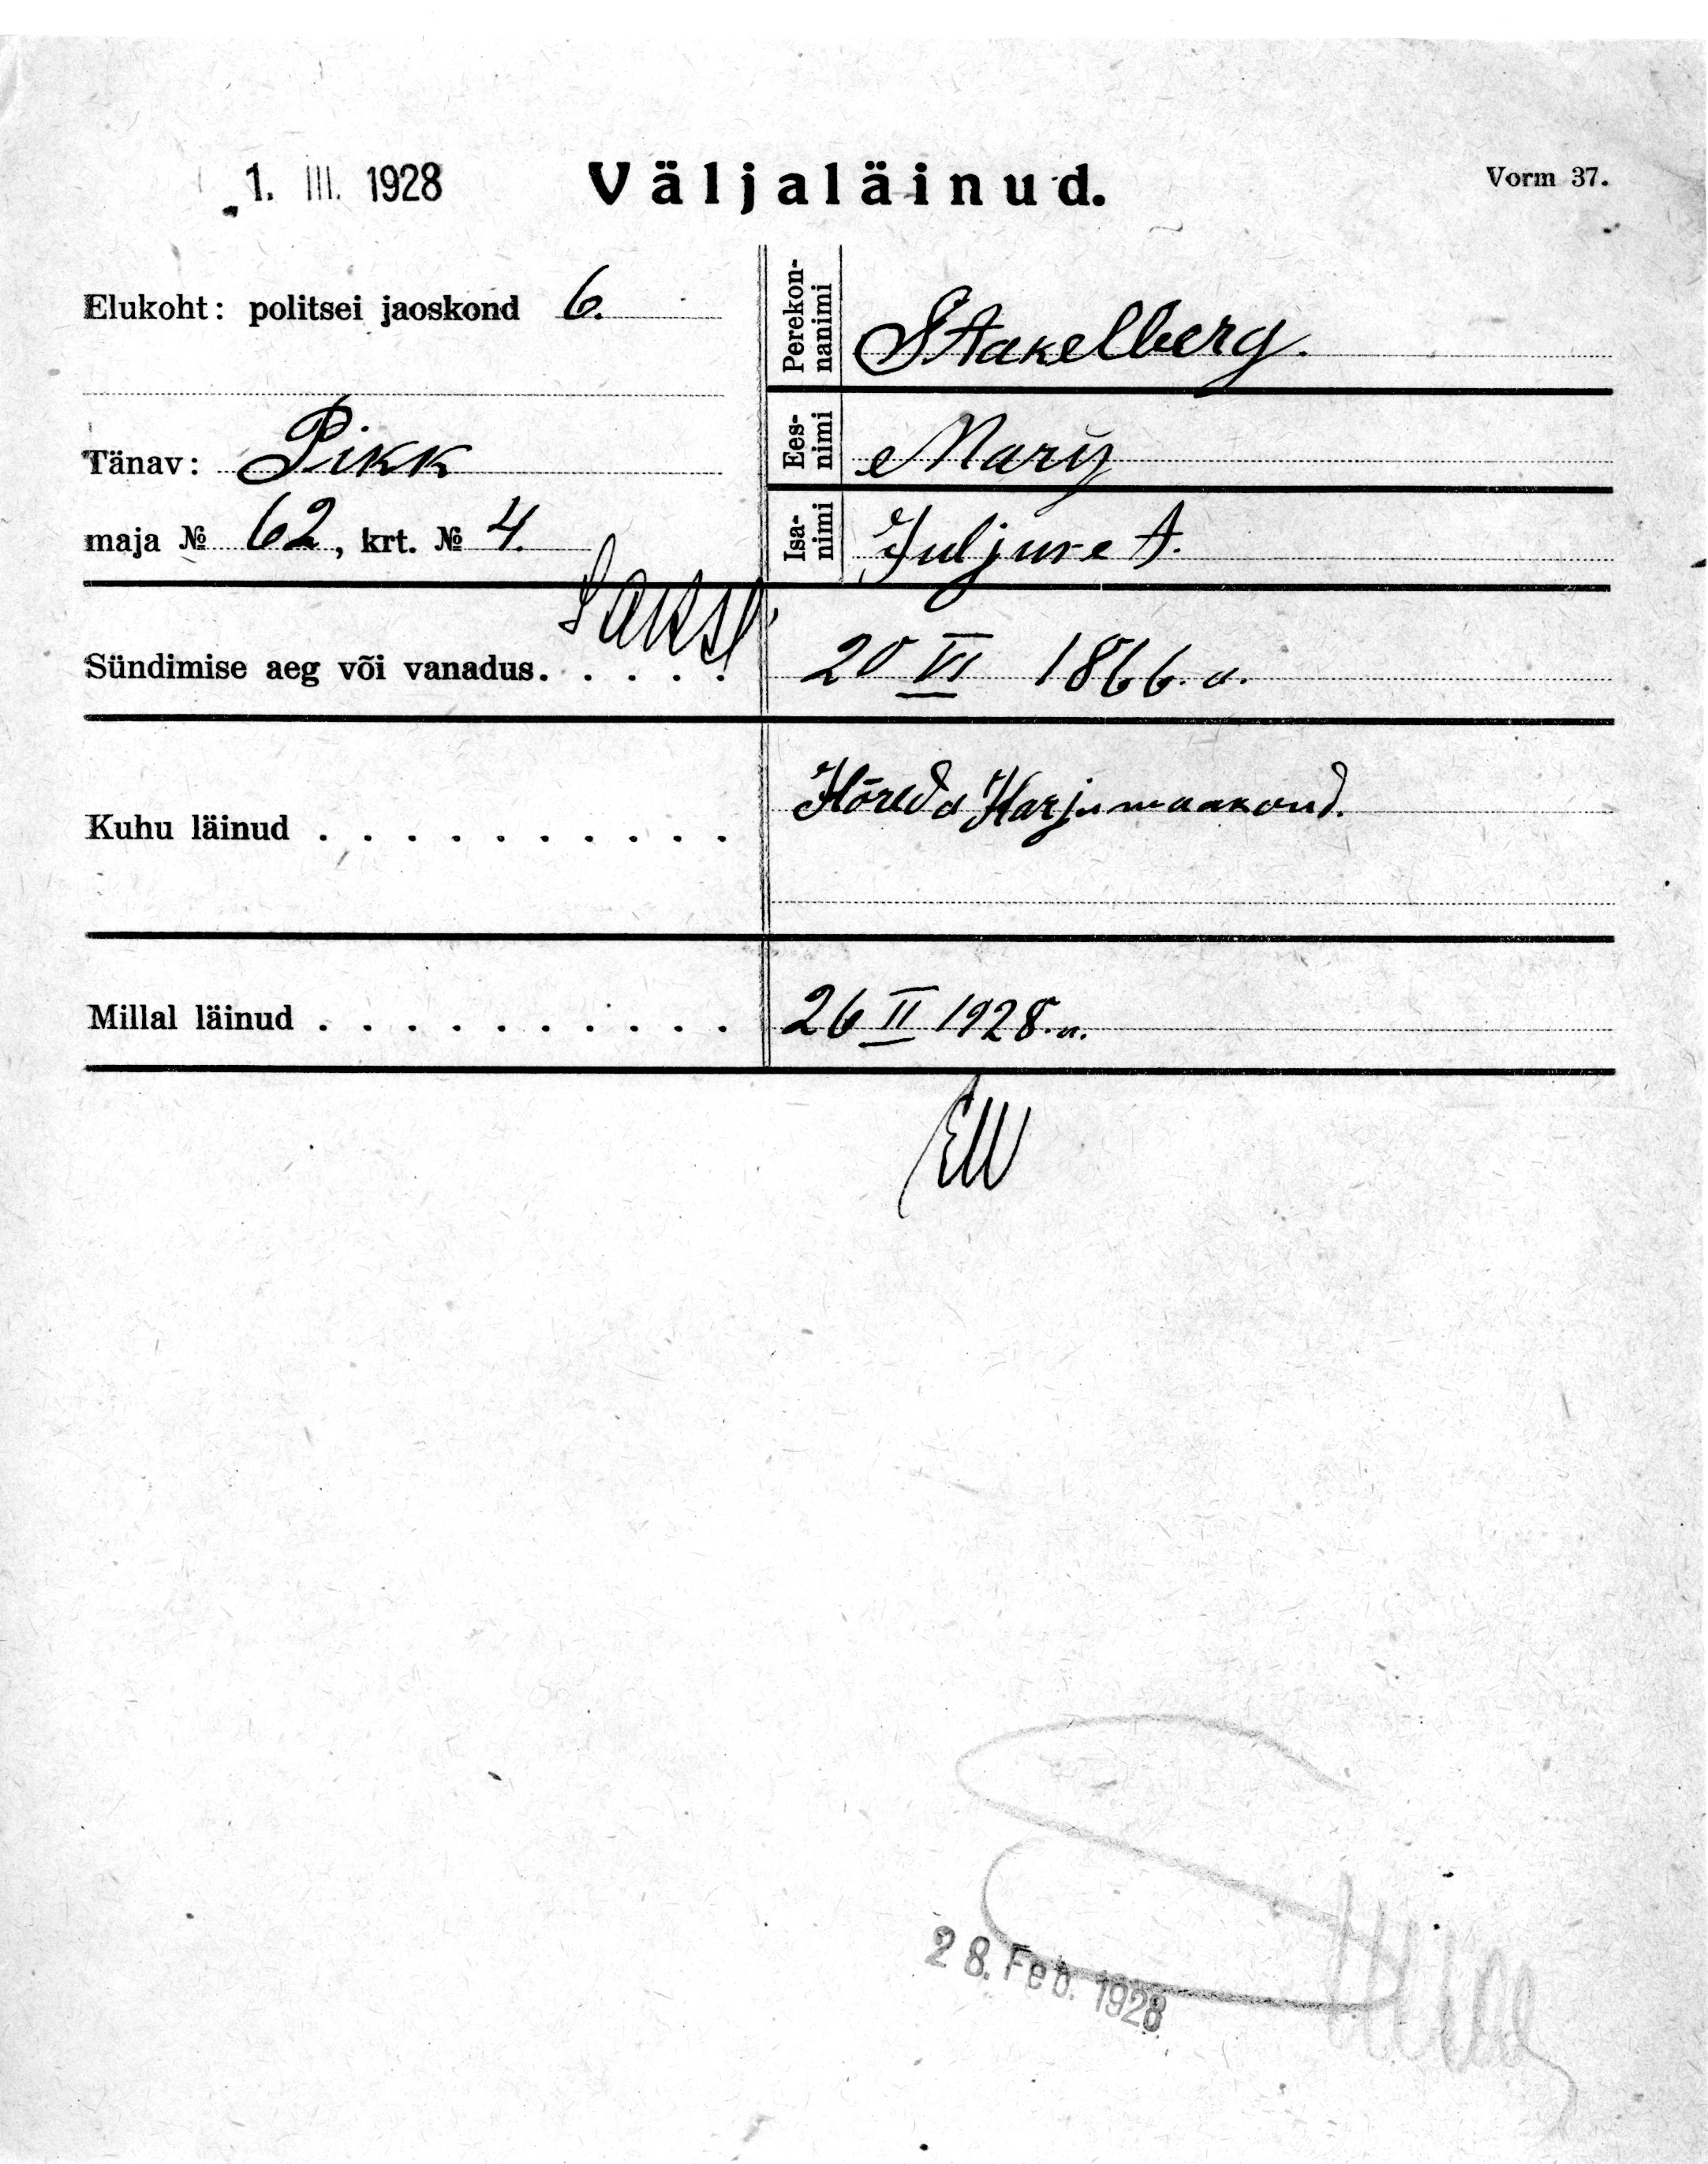 1. III. 1928
Väljaläinud.
Vorm 37.
Elukoht: politsei jaoskond 6.
Tänav: Pikk
maja № 62, krt. № 4.
Perekon-
nanimi
Stakelberg.
Ees-
nimi
Mary
Isa-
nimi
Juljuse t.
Saksl.
Sündimise aeg või vanadus. . . . . 20 VI 1866. a.
Kuhu läinud . . . . . . . . . . Hõreda Harjumaakond.
Millal läinud . . . . . . . . . . 26 II 1928. a.
28. Feb. 1928